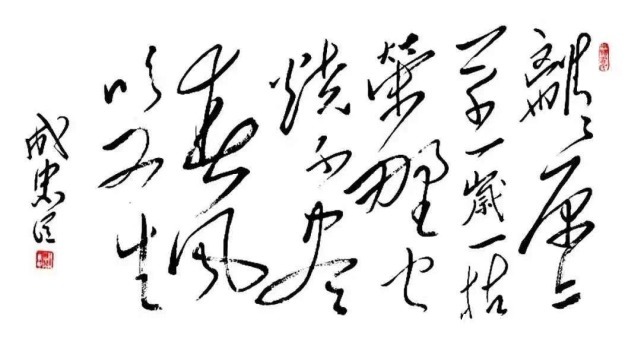 離々原上
草一歲一枯
榮野火
燒不尽
春風
吹又生
成忠